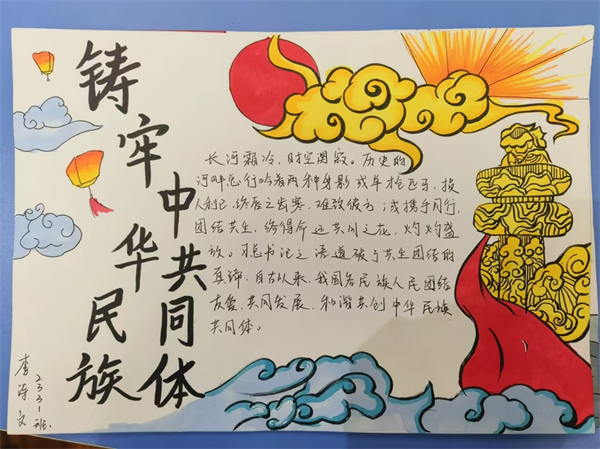 铸牢
中华民族
共同体
长河霜冷，时空阒寂。历史的
河畔总行吟着两种身影或单枪匹马，损
人利己，难致彼方；或携手同行，
团结共生，终得命运共同之花，灼灼盛
放。习总书记之语道破了共生团结的
真谛，自古以来，我国各民族人民团结
友爱，共同发展，和谐共创中华民族
共同体。
2331班
李诗文